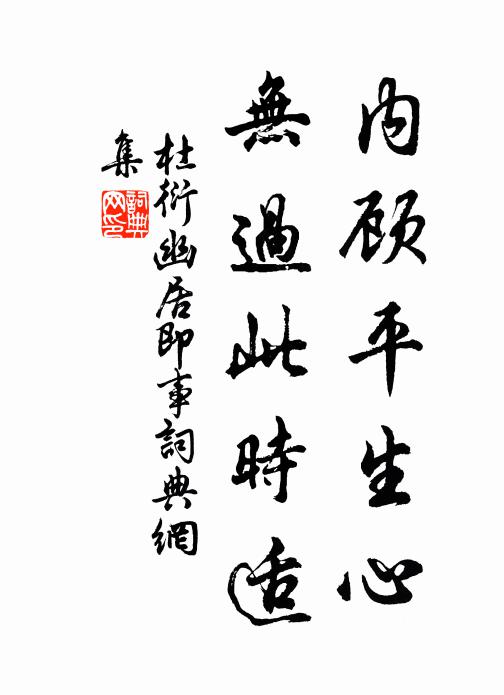 内顾平生心
無過此時适
杜衍幽居即事詞典網
集
詞典
网印